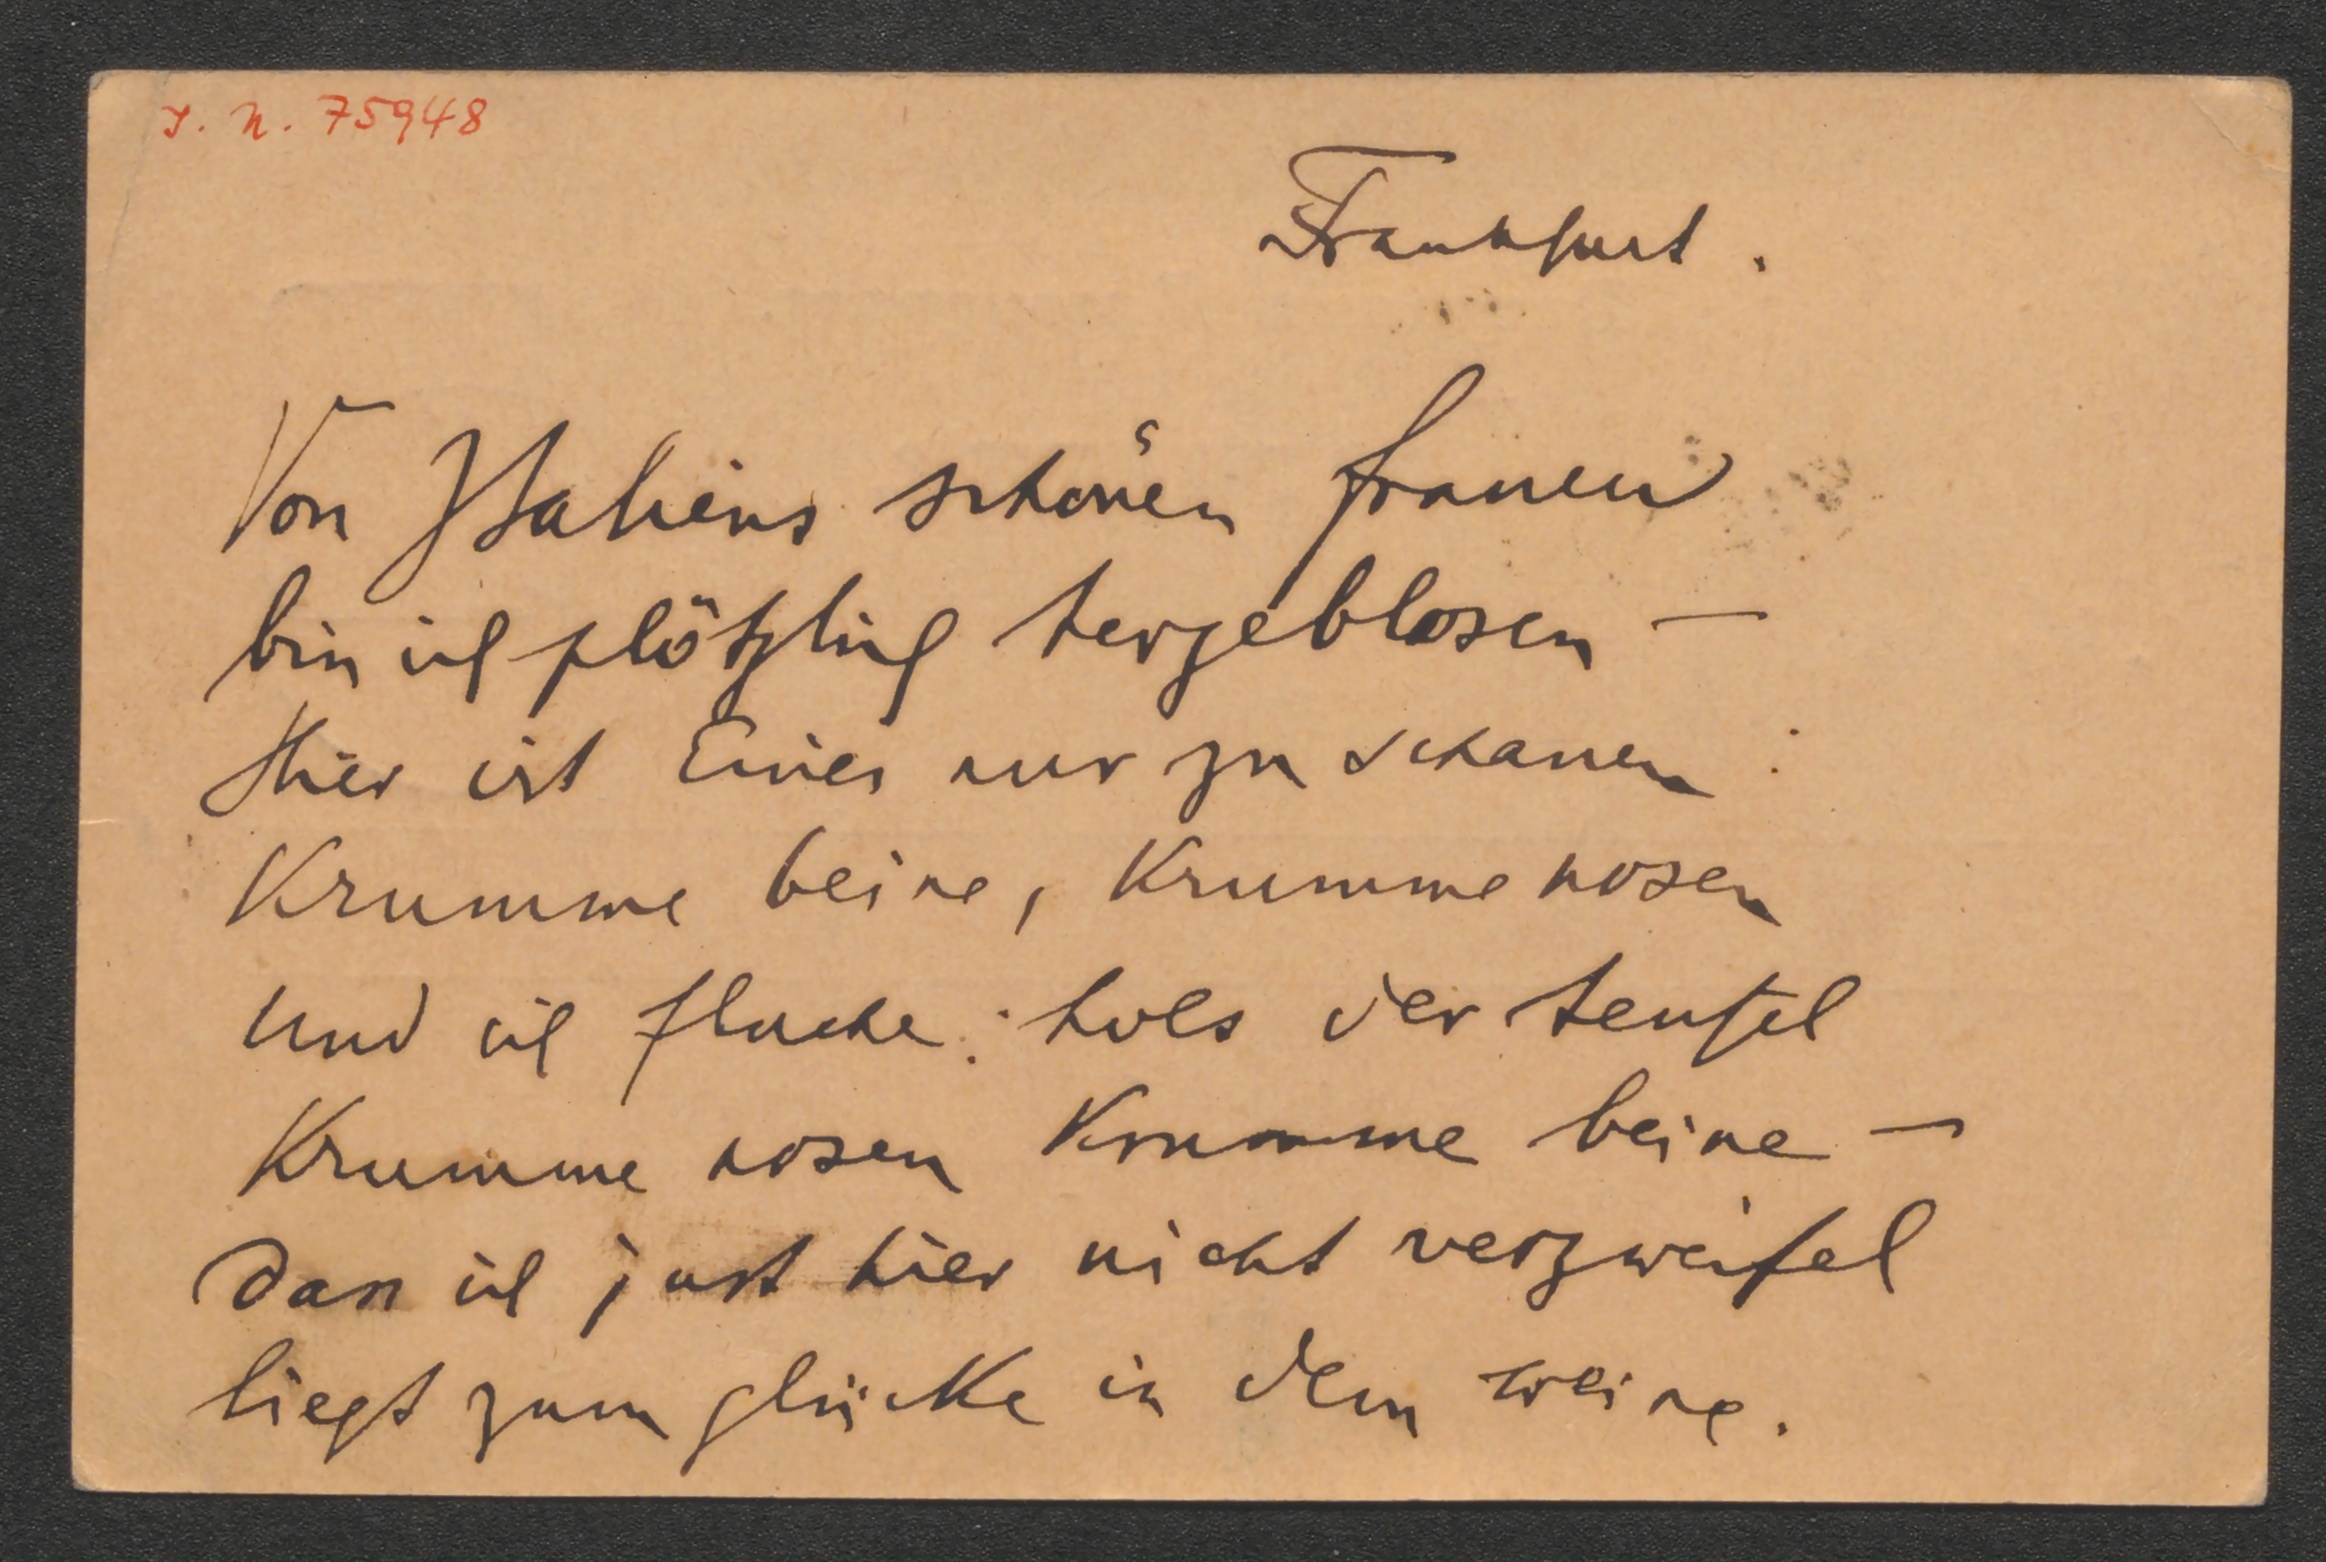 I. N. 75948
Frankfurt.
Von Italiens schönen frauen
bin ich plötzlich hergeblasen —
Hier ist Eines nur zu schauen:
Krumme beine, Krumme nasen
und ich fluche: hols der teufel
Krumme nasen Krumme beine —
Dass ich just hier nicht verzweifel
liegt zum glücke in dem weine.